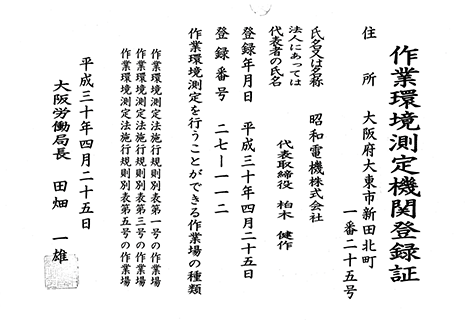 作業環境測定機関登録証
住所 大阪府大東市新田北町
一番二十五号
氏名又は名称 昭和電機株式会社
法人にあっては
代表者の氏名 代表取締役 柏木 健作
登録年月日 平成三十年四月二十五日
登録番号 二七―一一二
作業環境測定を行うことができる作業場の種類
作業環境測定法施行規則別表第一号の作業場
作業環境測定法施行規則別表第三号の作業場
作業環境測定法施行規則別表第五号の作業場
平成三十年四月二十五日
大阪労働局長 田畑 一雄